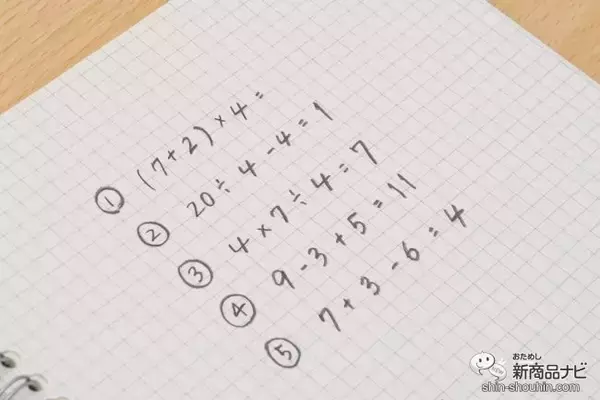 ① (7+2)×4=
② 20÷4-4=1
③ 4×7÷4=7
④ 9-3+5=11
⑤ 7+3-6=4
おためし
新商品ナビ
shin-shouhin.com